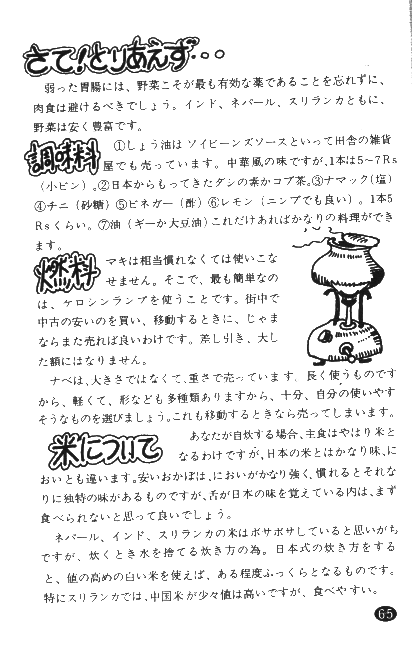 さて!とりあえず・・。
弱った胃腸には、野菜こそが最も有効な薬であることを忘れずに、
肉食は避けるべきでしょう。インド、ネパール、スリランカともに、
野菜は安く豊富です。
調味料
①しょう油は ソイビーンズソースといって田舎の雑貨
屋でも売っています。中華風の味ですが、1本は5〜7Rs
(小ビン)。②日本からもってきたダシの素かコブ茶。③ナマック(塩)
④チニ(砂糖)⑤ビネガー(酢)⑥レモン(ニンブでも良い)。1本5
Rsくらい。⑦油(ギーか大豆油)これだけあればかなりの料理ができ
ます。
燃料
マキは相当慣れなくては使いこな
せません。そこで、最も簡単なの
は、ケロシンランプを使うことです。街中で
中古の安いのを買い、移動するときに、じゃま
ならまた売れば良いわけです。差し引き、大し
た額にはなりません。
ナベは、大きさではなくて、重さで売っています。長く使うものです
から、軽くて、形なども多種類ありますから、十分、自分の使いやす
そうなものを選びましょう。これも移動するときなら売ってしまいます。
米について
あなたが自炊する場合、主食はやはり米と
なるわけですが、日本の米とはかなり味、に
おいとも違います。安いおかぼは、においがかなり強く、慣れるとそれな
りに独特の味があるものですが、舌が日本の味を覚えている内は、まず
食べられないと思って良いでしょう。
ネパール、インド、スリランカの米はボサボサしていると思いがち
ですが、炊くとき水を捨てる炊き方の為。日本式の炊き方をする
と、値の高めの白い米を使えば、ある程度ふっくらとなるものです。
特にスリランカでは、中国米が少々値は高いですが、食べやすい。
65